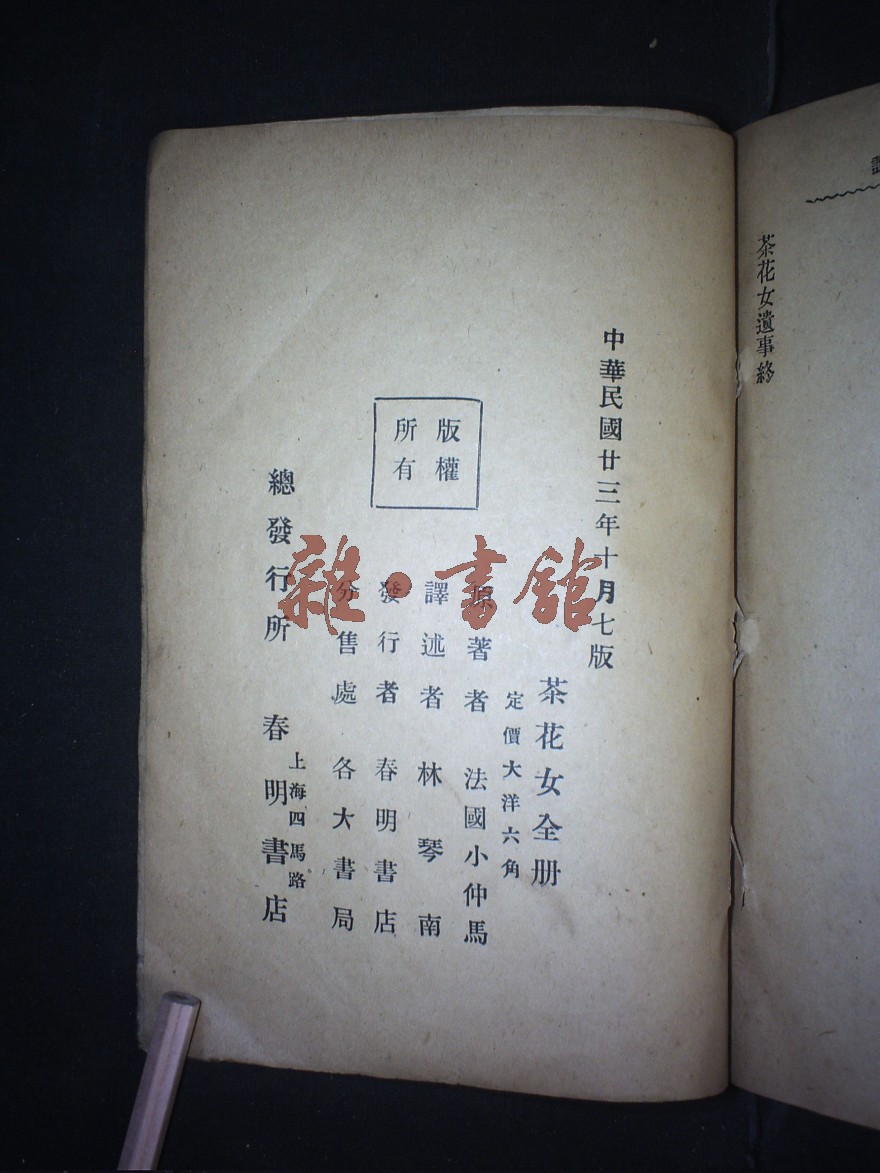 茶花女遺事終
中華民國廿三年十月七版
茶花女全册
定價大洋六角
原著者 法國小仲馬
譯述者 林琴南
發行者 春明書店
分售處 各大書局
上海四馬路
總發行所 春明書店
版權
所有
雜·書館